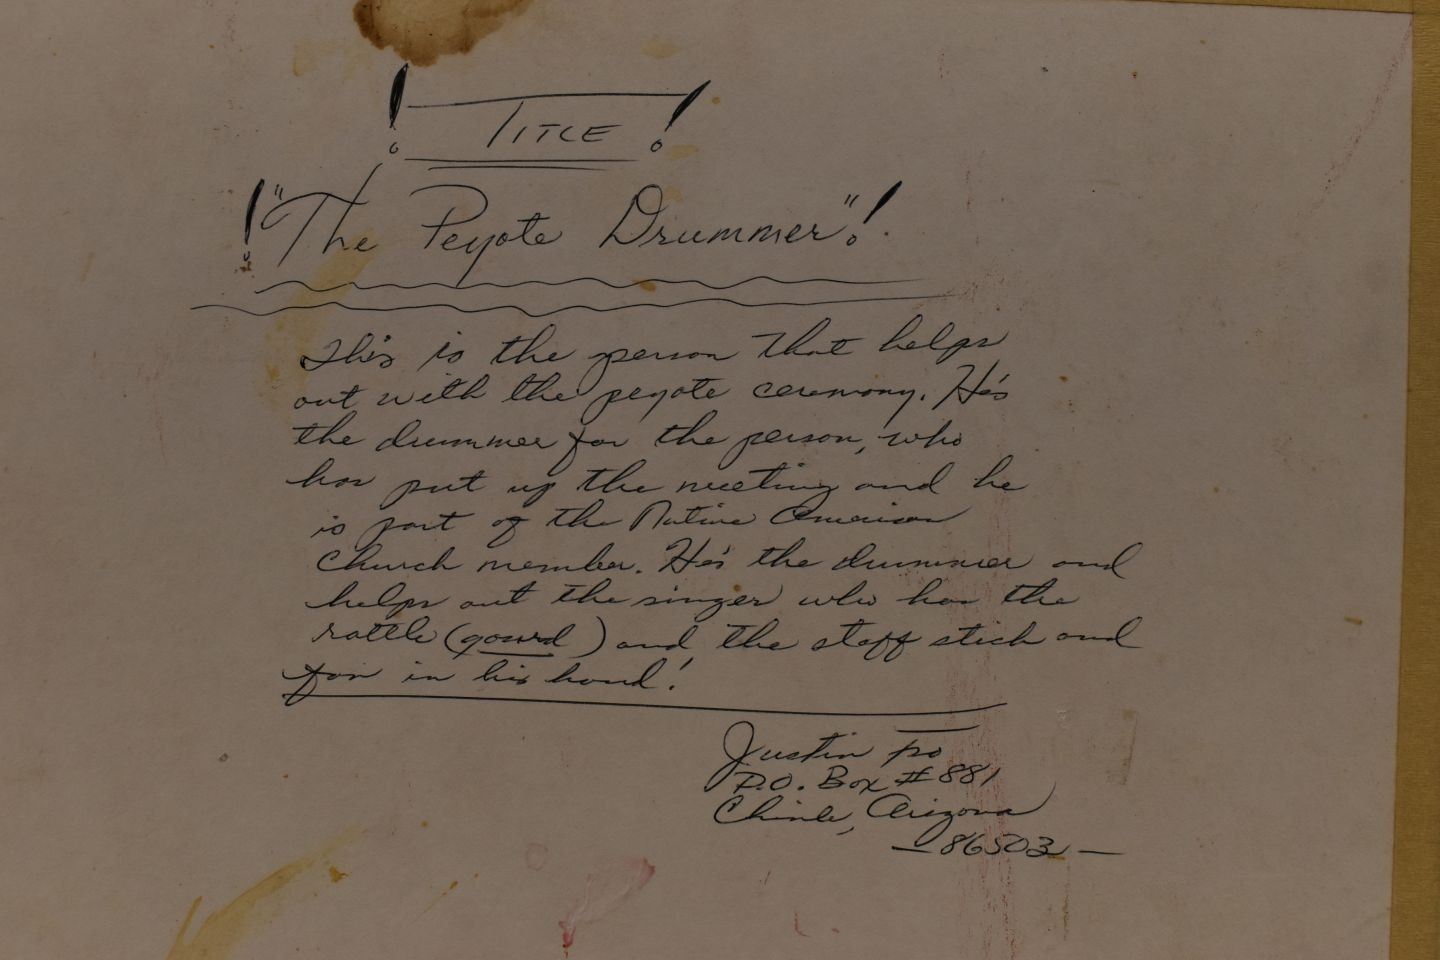 ! TITLE !
! "The Peyote Drummer" !
This is the person that helps
out with the peyote ceremony. He's
the drummer for the person, who
has put up the meeting and he
is part of the Native American
Church member. He's the drummer and
helps out the singer who has the
rattle (gourd) and the staff stick and
fan in his hand!
Justin
P.O. Box #881
Chinle, Arizona
-86503-